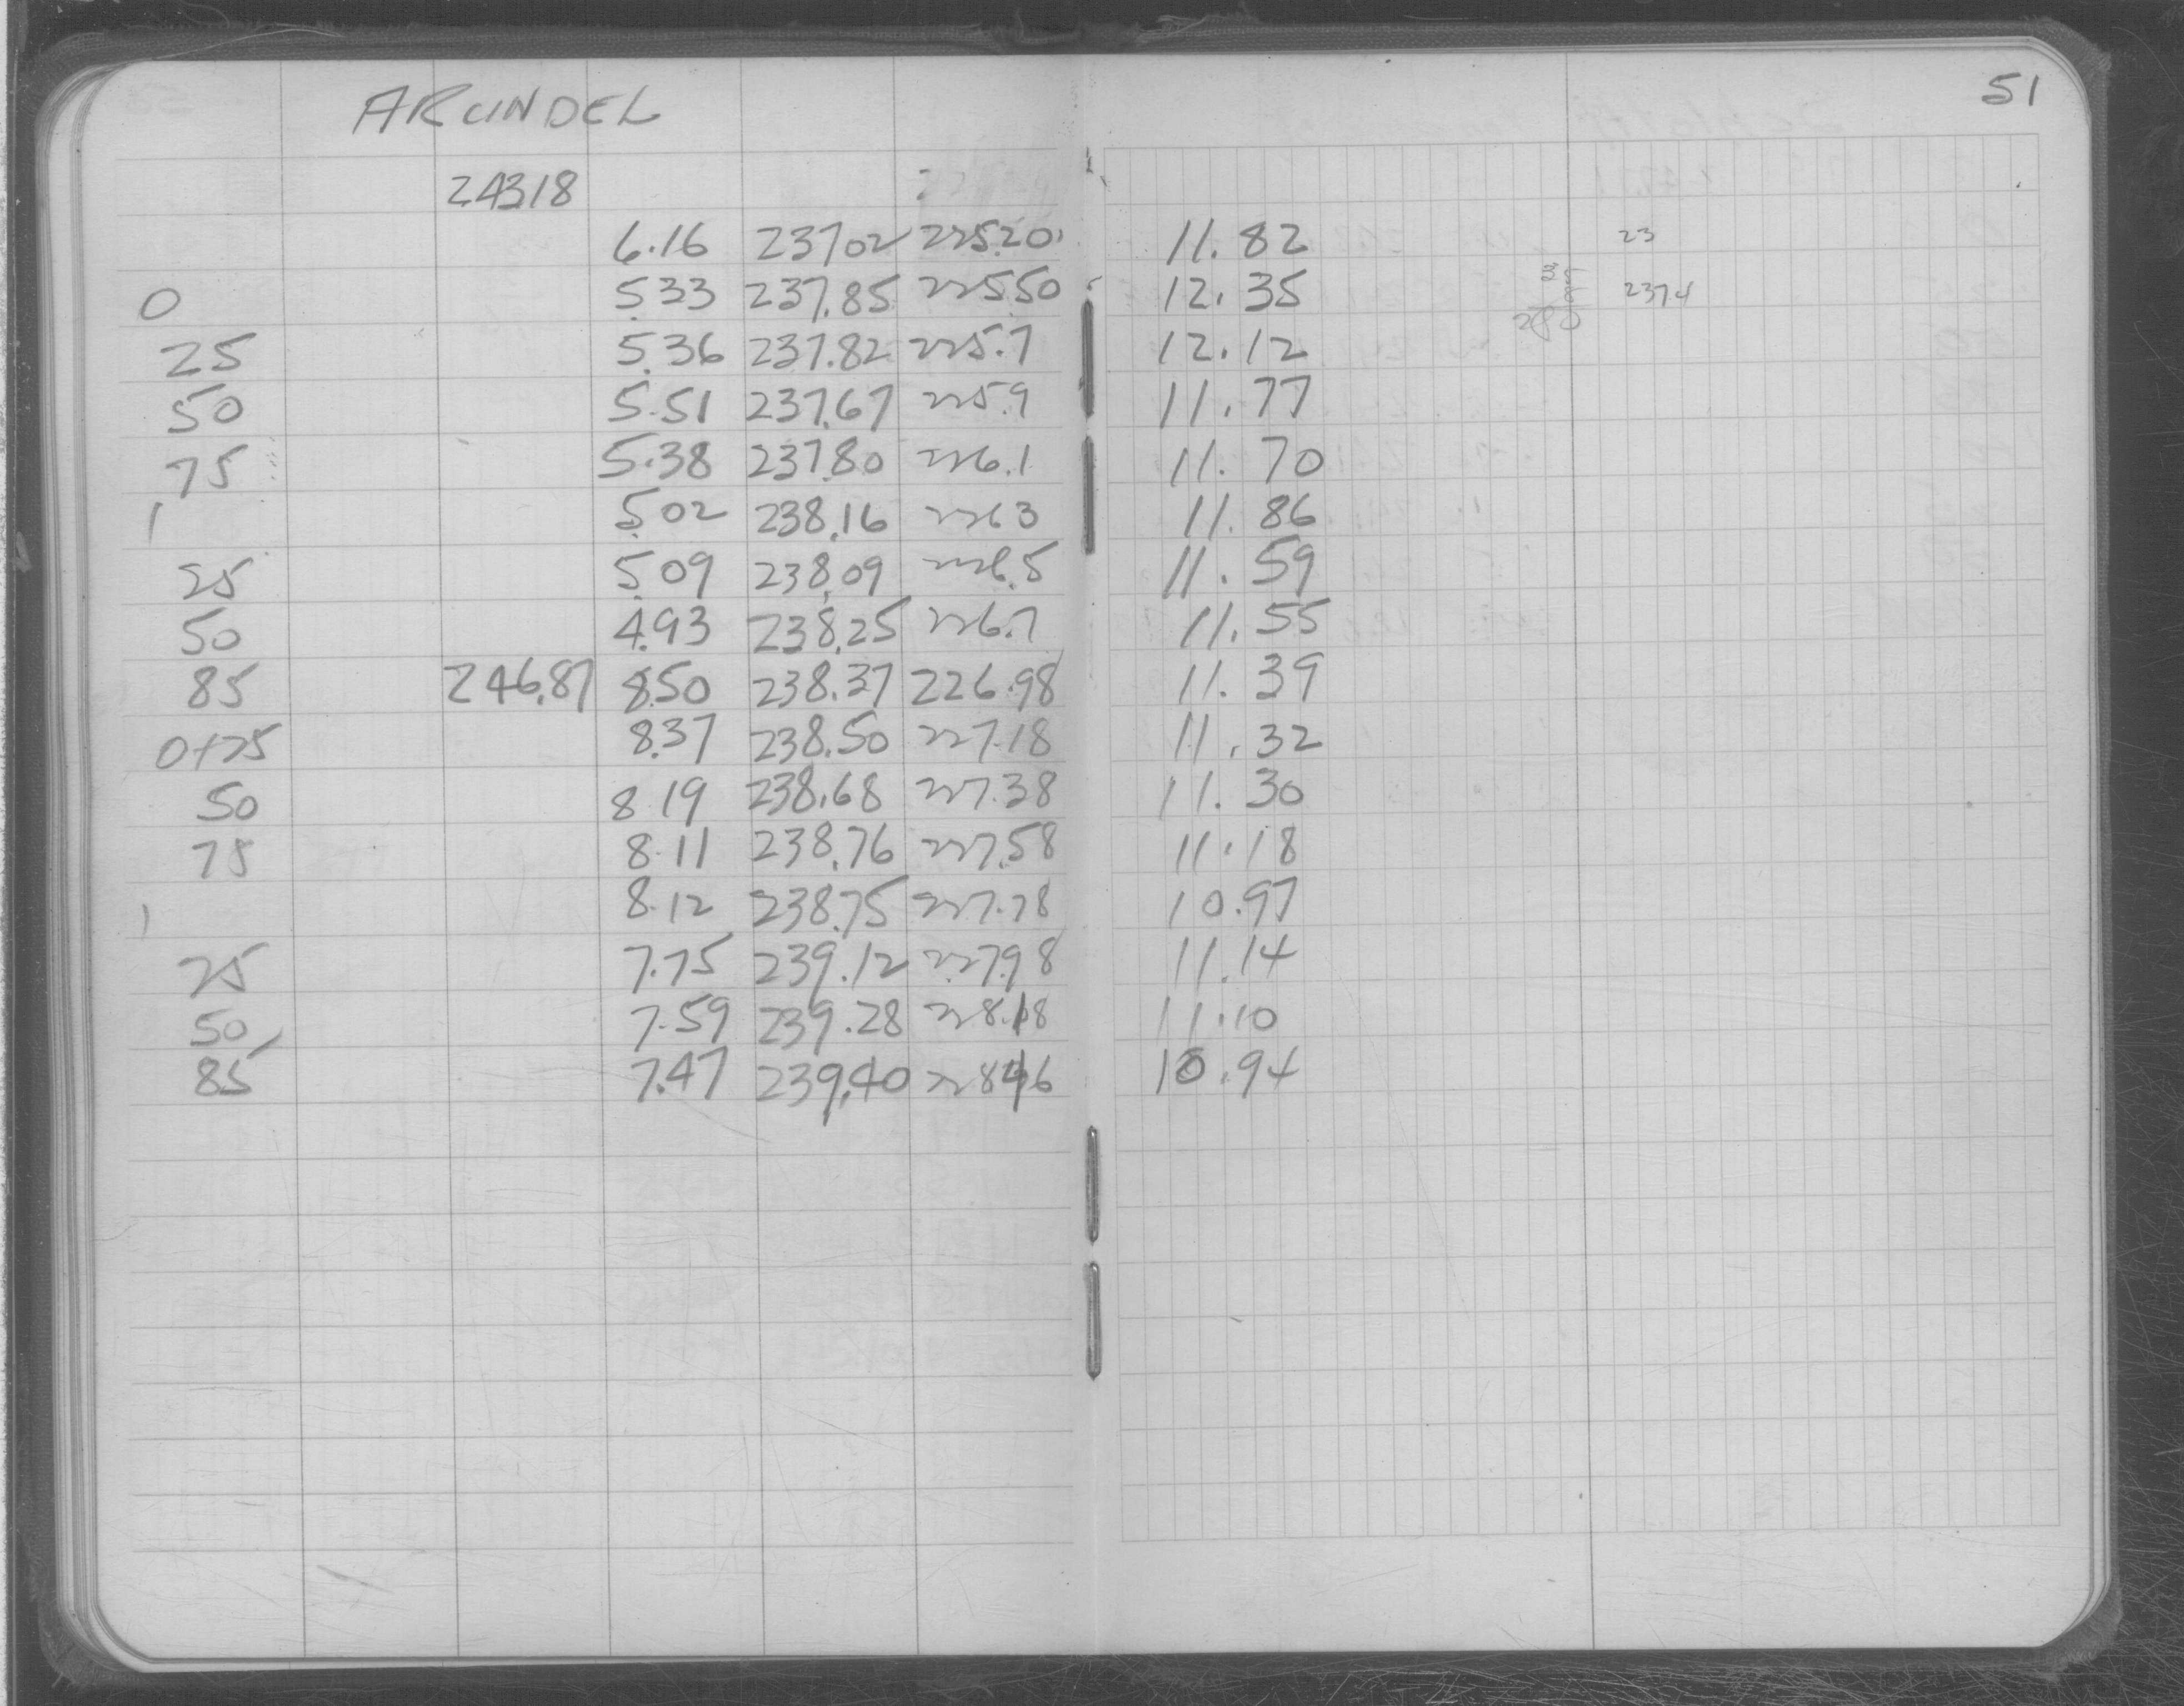 ARUNDEL 51
243.18
6.16 237.02 225.20 11.82 23
0 5.33 237.85 225.50 12.35 2374
25 5.36 237.82 225.7 12.12
50 5.51 237.67 225.9 11.77
75 5.38 237.80 226.1 11.70
1 5.02 238.16 226.3 11.86
25 5.09 238.09 226.5 11.59
50 4.93 238.25 226.7 11.55
85 246.87 8.50 238.37 226.98 11.39
0+25 8.37 238.50 227.18 11.32
50 8.19 238.68 227.38 11.30
75 8.11 238.76 227.58 11.18
1 8.12 238.75 227.78 10.97
25 7.75 239.12 227.98 11.14
50 7.59 239.28 228.18 11.10
85 7.47 239.40 228.46 10.94